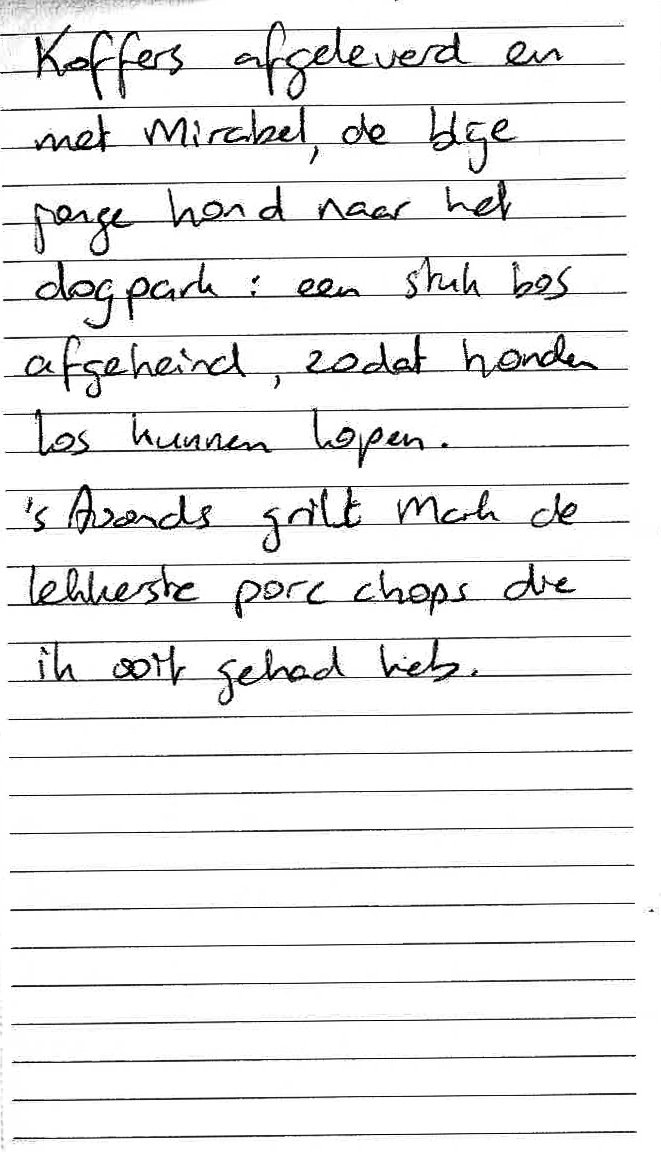 Koffers afgeleverd en
met Mirabel, de
jonge hond naar het
dogpark : een stuk bos
afgeheind, zodat honden
los kunnen lopen.
's Avonds grilt Mark de
lekkerste porc chops die
ik ooit gehad heb.